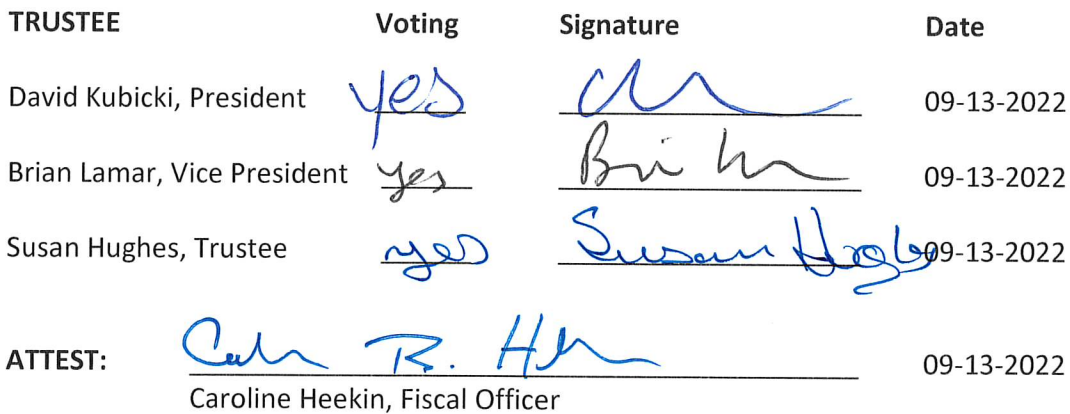 TRUSTEE Voting Signature Date
David Kubicki, President yes 09-13-2022
Brian Lamar, Vice President yes 09-13-2022
Susan Hughes, Trustee yes Susan Hughes 09-13-2022
ATTEST: 09-13-2022
Caroline Heekin, Fiscal Officer